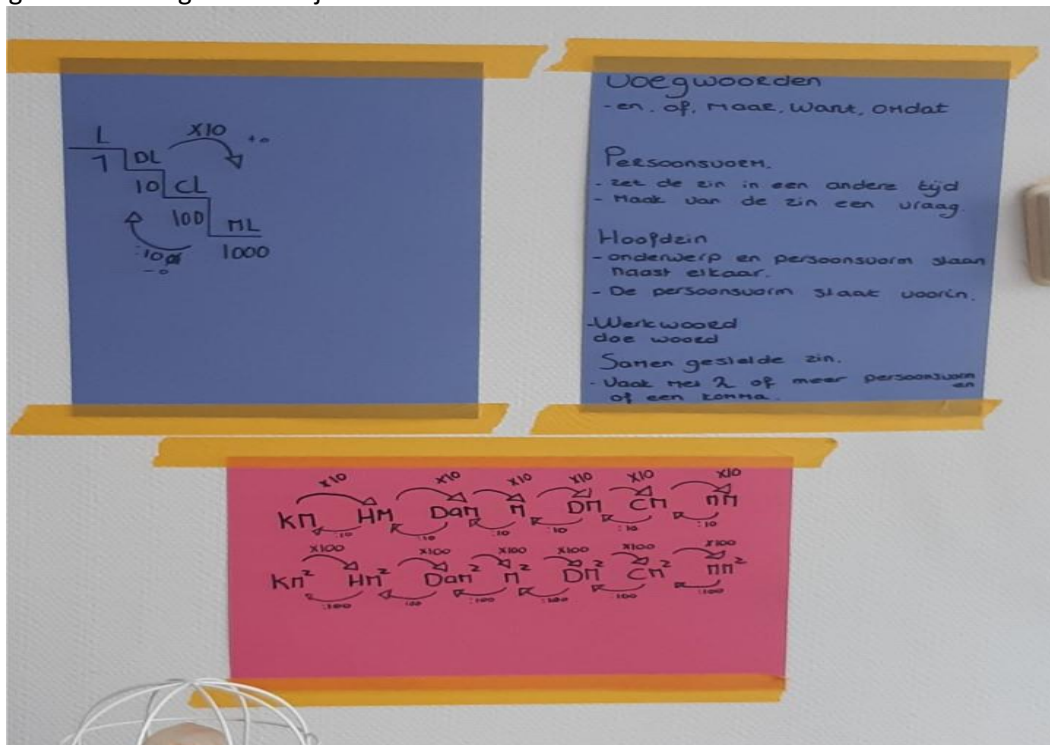 L
x10
+0
1
DL
10
CL
100
ML
1000
:10
-0
Voegwoorden
- en, of, maar, want, omdat
Persoonsvorm.
- zet de zin in een andere tijd
- Maak van de zin een vraag.
Hoofdzin
- onderwerp en persoonsvorm staan
naast elkaar.
- De persoonsvorm staat voorin.
- Werkwoord
doe woord
Samen gestelde zin.
- Vaak met 2 of meer persoonsvorm
en
of een komma.
x10 x10 x10 x10 x10 x10
KM HM DaM M DM CM MM
:10 :10 :10 :10 :10 :10
x100 x100 x100 x100 x100 x100
KM² HM² DaM² M² DM² CM² MM²
:100 :100 :100 :100 :100 :100